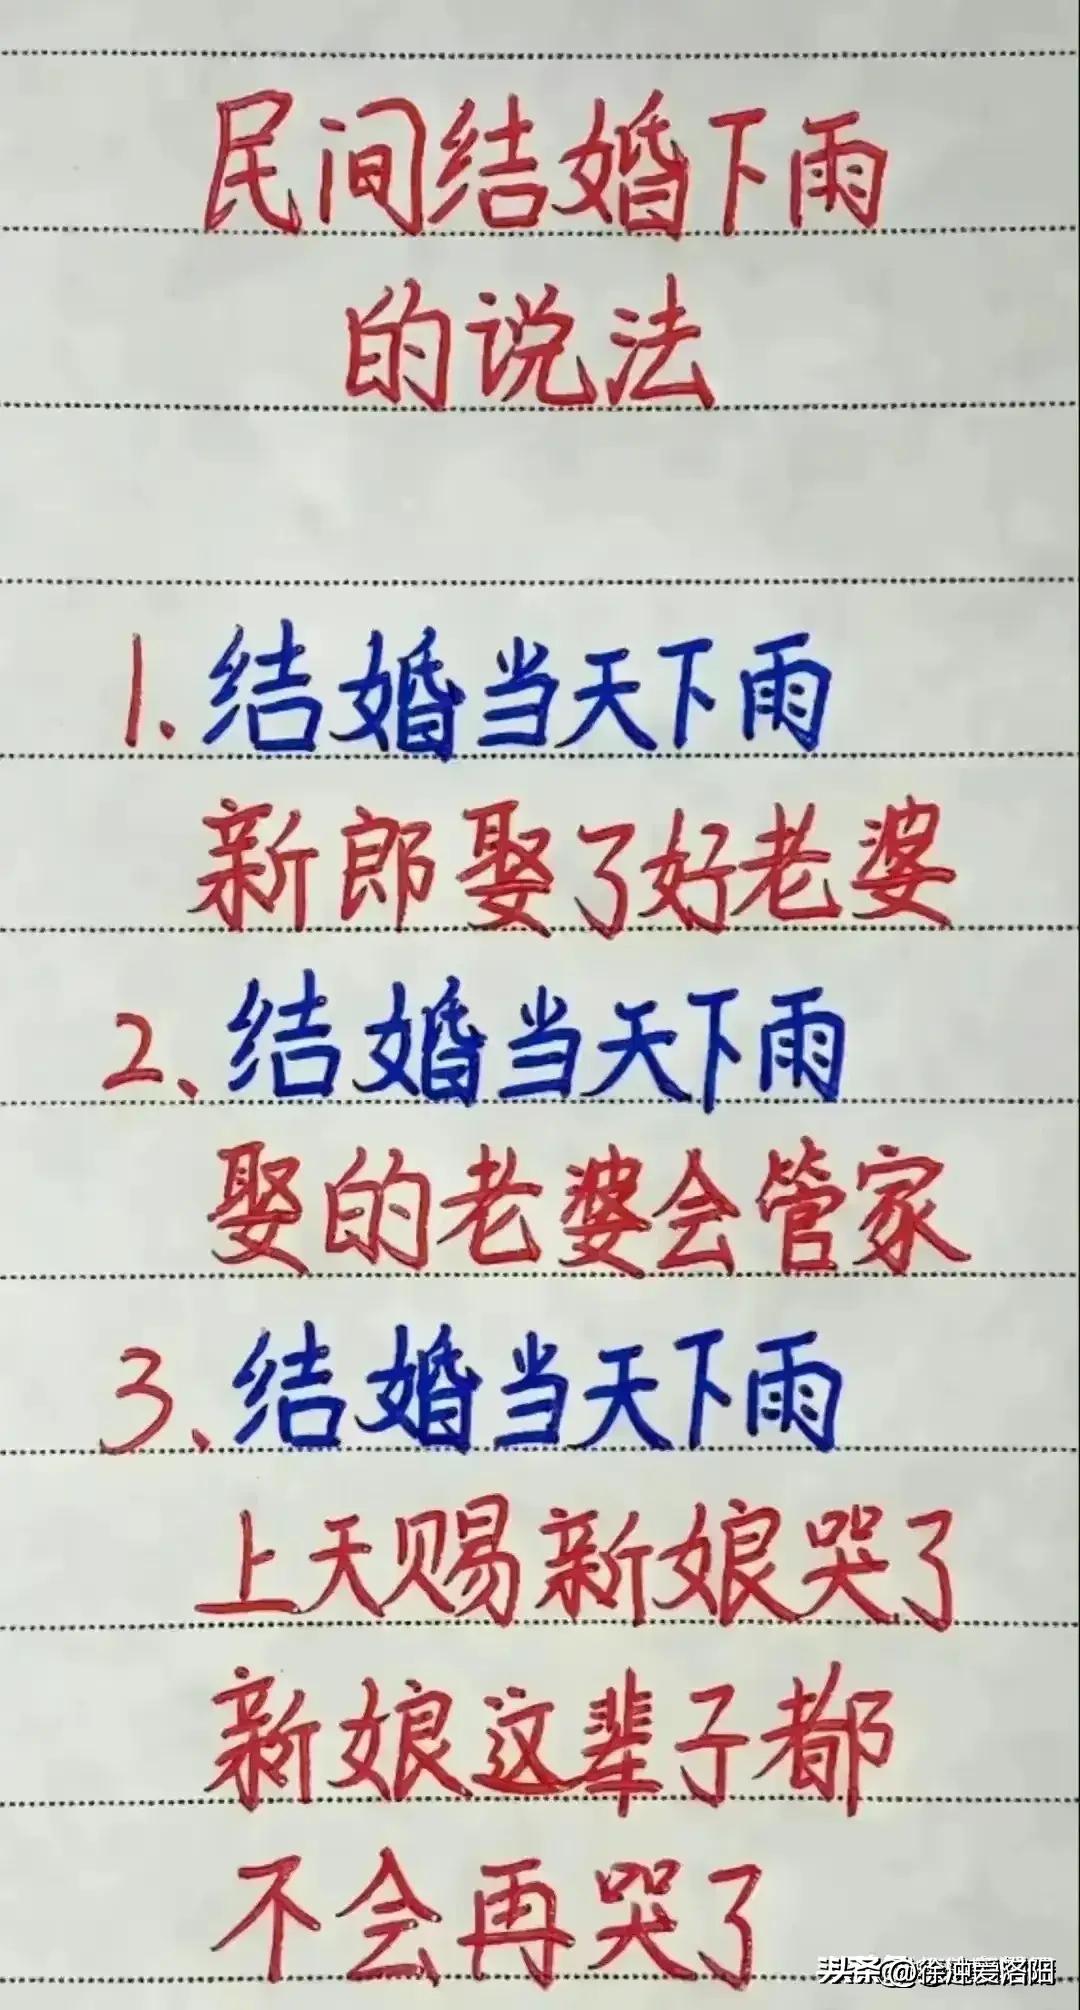 民间结婚下雨
的说法
1.结婚当天下雨
新郎娶了好老婆
2、结婚当天下雨
娶的老婆会管家
3、结婚当天下雨
上天赐新娘哭了
新娘这辈子都
不会再哭了
头条@徐灿爱洛阳